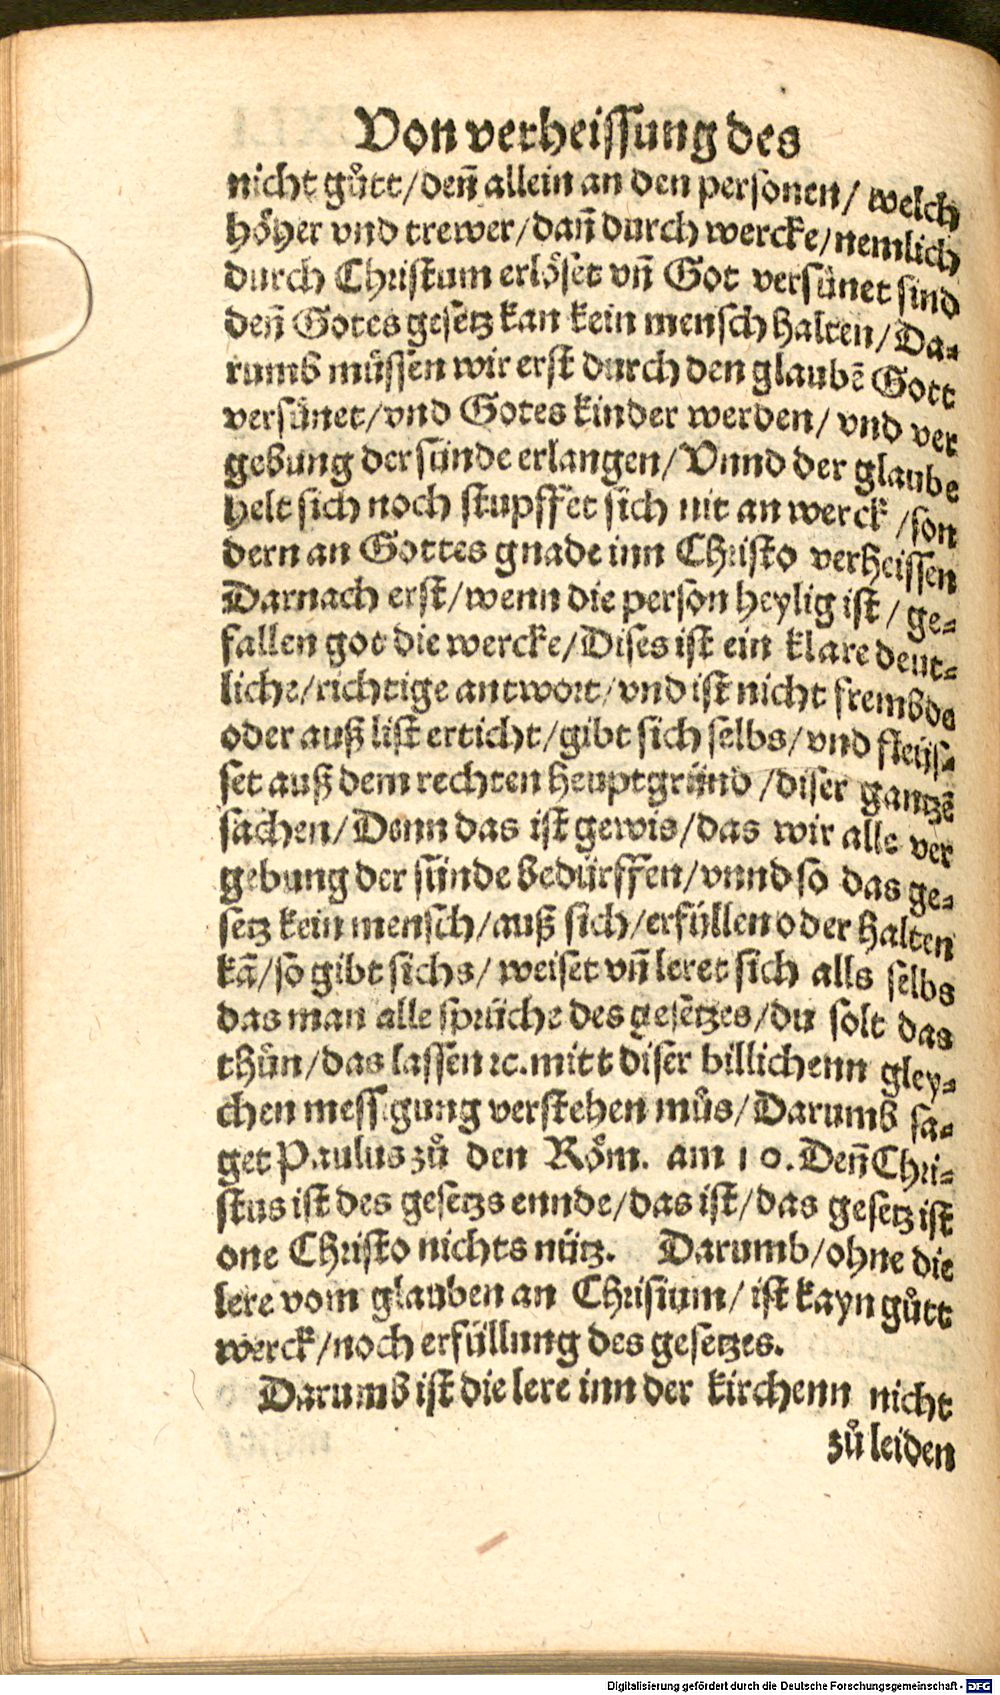 Von verheissung des
nicht gůtt/deñ allein an den personen/ welch
höher vnd trewer/dañ durch wercke/nemlich
durch Christum erlöset vñ Got versünet sind
deñ Gotes gesetz kan kein mensch halten/Da-
rumb müssen wir erst durch den glaubẽ Gott
versünet/vnd Gotes kinder werden/ vnd ver
gebung der sünde erlangen/Vnnd der glaube
helt sich noch stupffet sich nit an werck /son
dern an Gottes gnade inn Christo verheissen
Darnach erst/wenn die person heylig ist/ ge-
fallen got die wercke/Dises ist ein klare deut-
liche/richtige antwort/vnd ist nicht frembde
oder auß list erticht/gibt sich selbs/vnd fleüs-
set auß dem rechten heuptgründ /diser gantzẽ
sachen/Denn das ist gewis/das wir alle ver
gebung der sünde bedürffen/vnnd so das ge-
setz kein mensch/auß sich/erfüllen oder halten
kã/so gibt sichs/ weiset vñ leret sich alls selbs
das man alle sprüche des gesetzes/du solt das
thůn/das lassen ꝛc. mitt diser billichenn gley-
chen messigung verstehen můs/Darumb sa-
get Paulus zů den Röm. am 10. Deñ Chri-
stus ist des gesetzs ennde/das ist/das gesetz ist
one Christo nichts nütz. Darumb/ohne die
lere vom glauben an Christum/ ist kayn gůtt
werck/noch erfüllung des gesetzes.
Darumb ist die lere inn der kirchenn nicht
zů leiden
Digitalisierung gefördert durch die Deutsche Forschungsgemeinschaft - DFG